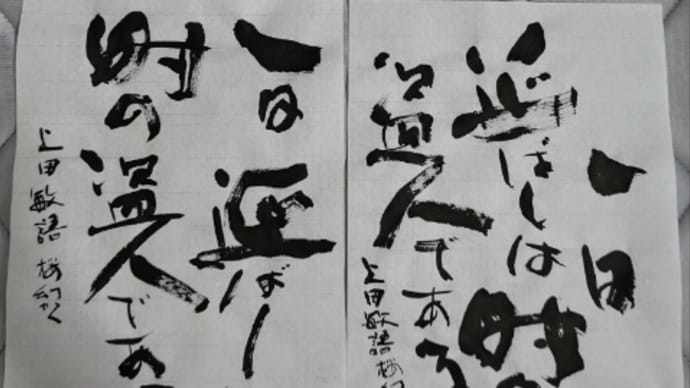 一日
延ばしは時
盗人である
上田敏語 桜幻
一日延ばし
時の盗人であ
上田敏語 桜幻かく